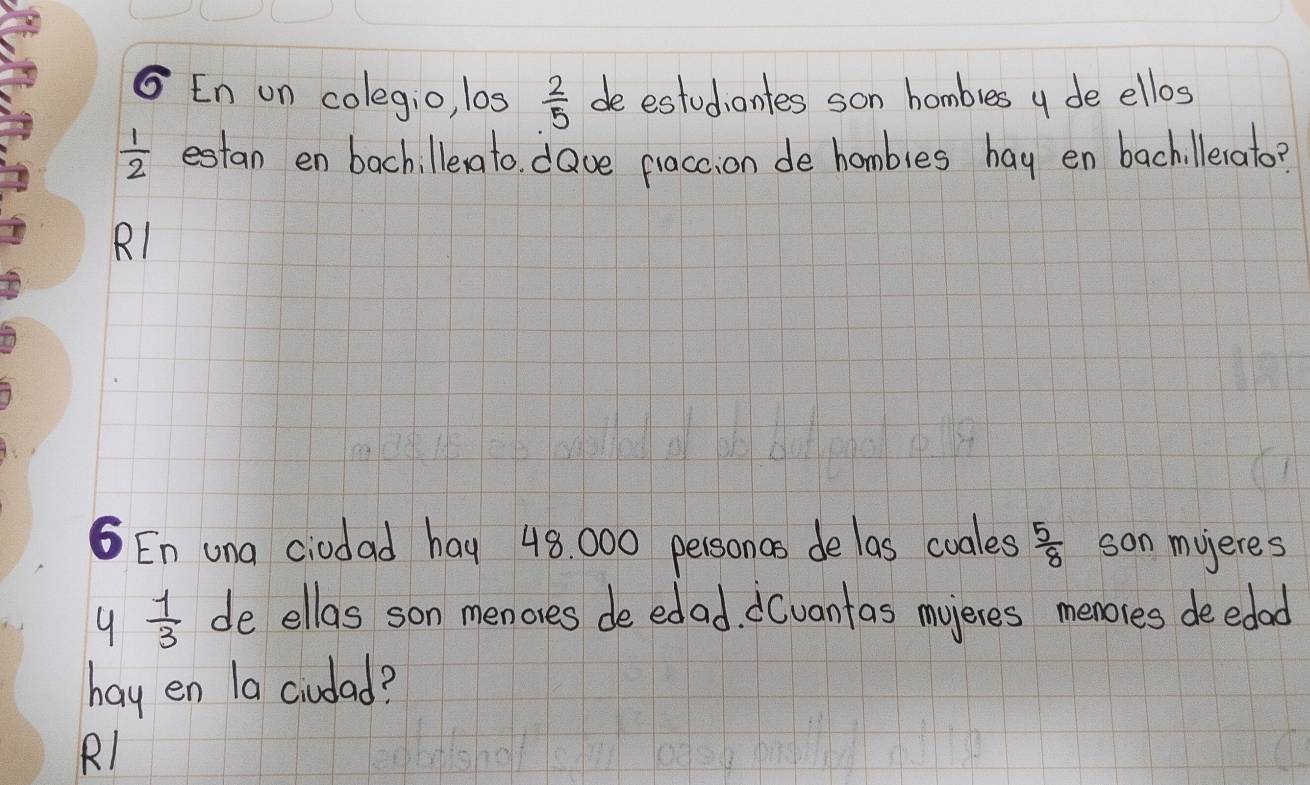 6 En un colegio, los 2/5 de estudiantes son hombres y de ellos
1/2 estan en bachillerato. ¿Que fraccion de hombres hay en bachillerato?
R/
6 En una ciudad hay 48.000 personas de las cuales 5/8 son mujeres
y 1/3 de ellas son menores de edad. ¿Cuantas mujeres menores de edad
hay en la ciudad?
R/